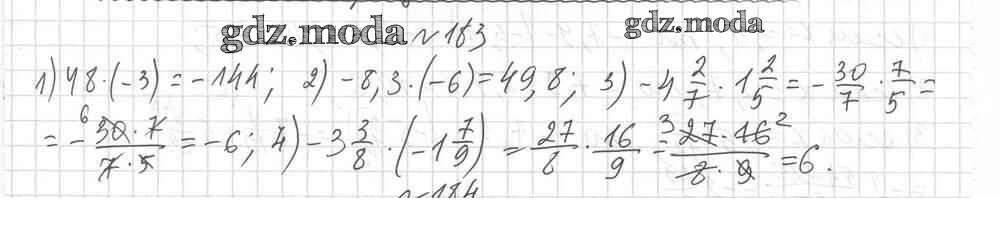 gdz.moda №183 gdz.moda
1) 48·(-3) = -144; 2) -8,3·(-6) = 49,8; 3) -4 2/7 · 1 2/5 = - 30/7 · 7/5 =
= - 6 30·7/7·5 = -6; 4) -3 3/8 · (-1 7/9) = 27/8 · 16/9 = 3 27·16 2/8·9 = 6.
№184